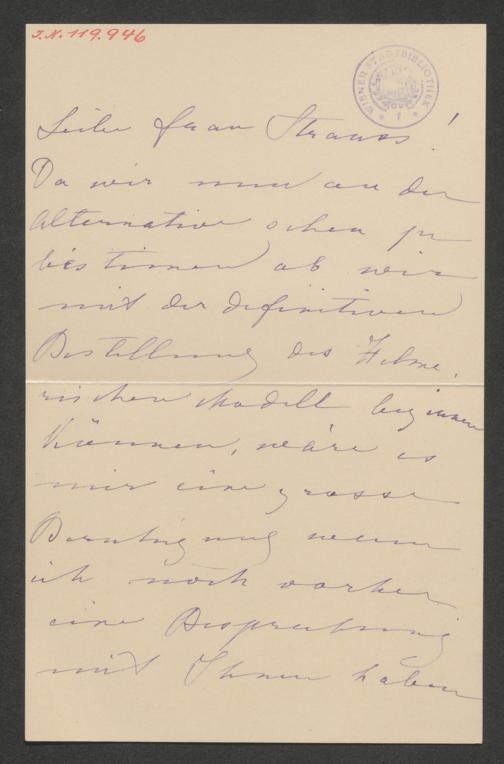 J.N. 119.946
WIENER STADTBIBLIOTHEK
1
Liebe Frau Strauss!
Da wir nun an der
Alternative stehen zu
bestimmen ob wir
mit der definitiven
Bestellung des
rischen Modell beginnen
können, wäre es
mir eine grosse
Beruhigung wenn
ich noch vorher
eine Besprechung
mit Ihnen haben